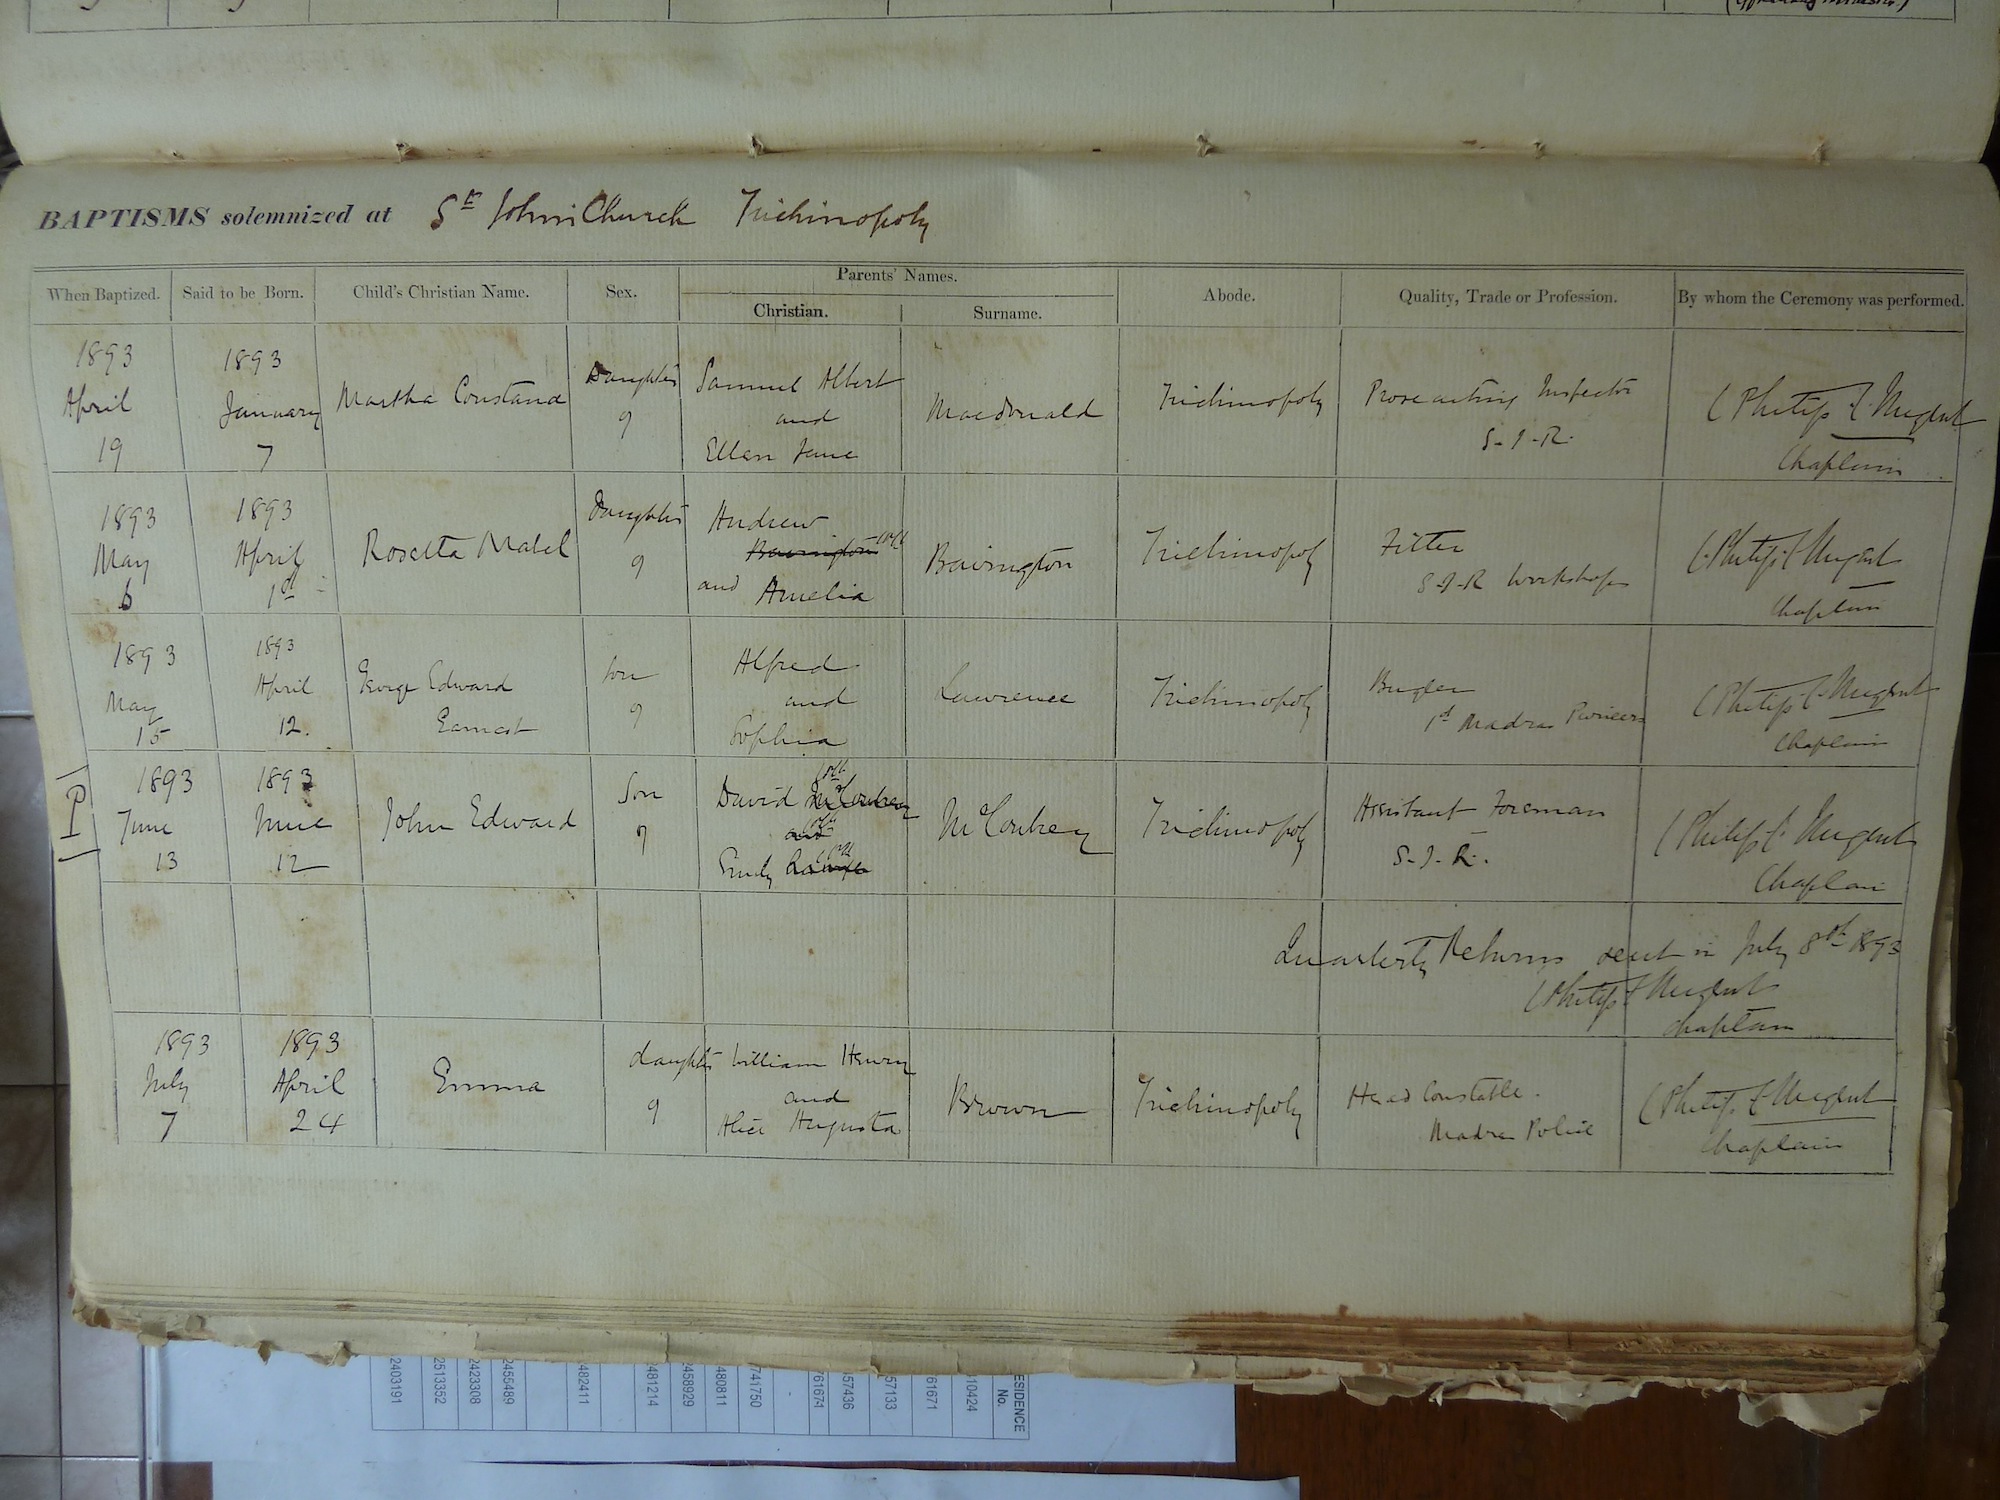 (Officiating Minister)
BAPTISMS solemnized at St John's Church Trichinopoly
Parents' Names.
When Baptized. Said to be Born. Child's Christian Name. Sex. Christian. Surname. Abode. Quality, Trade or Profession. By whom the Ceremony was performed.
1893 April 19
1893 January 7
Martha Constance
Daughter
Samuel Albert
and
Ellen Jane
Macdonald
Trichinopoly
Prosecuting Inspector
S.I.R.
Philip Nugent
Chaplain
1893 May 6
1893 April 1st
Rosetta Mabel
Daughter
Andrew
Barrington
and Amelia
Barrington
Trichinopoly
Fitter
S.I.R Workshops
Philip Nugent
Chaplain
1893 May 15
1893 April 12.
George Edward
Earnest
Son
Alfred
and
Sophia
Lawrence
Trichinopoly
Bugler
1st Madras Pioneers
Philip Nugent
Chaplain
P
1893 June 13
1893 June 12
John Edward
Son
David
and
Emily
Trichinopoly
Assistant Foreman
S.I.R.
Philip Nugent
Chaplain
Quarterly Returns sent in July 8th 1893
Philip Nugent
Chaplain
1893 July 7
1893 April 24
Emma
daughter
William Henry
and
Alice Augusta
Brown
Trichinopoly
Head Constable.
Madras Police
Philip Nugent
Chaplain
2403191
2513352
2423308
2455489
482411
481214
458929
480811
741750
-
761671
57436
57133
61671
10424
ESIDENCE
No.